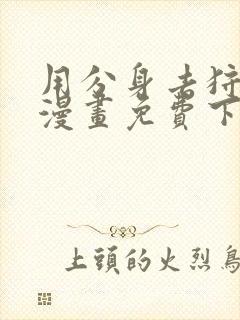 用分身去狩
漫畫免費下
上頭的火烈鳥